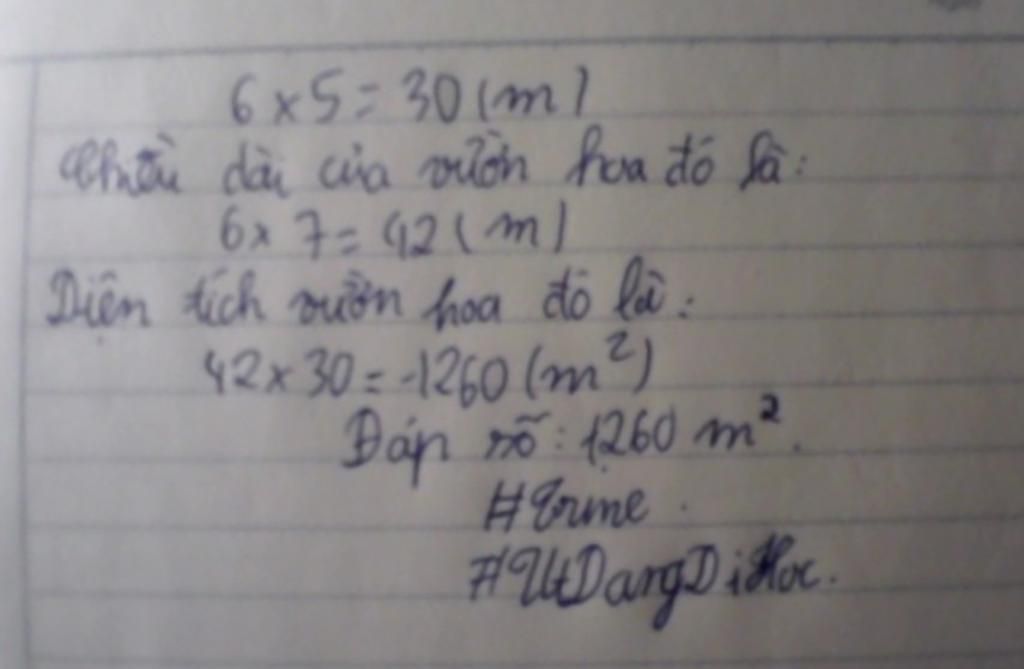 6 × 5 = 30 (m)
Chiều dài của vườn hoa đó là:
6 × 7 = 42 (m)
Diện tích vườn hoa đó là:
42 × 30 = 1260 (m²)
Đáp số: 1260 m².
#UtDangDiHoc.